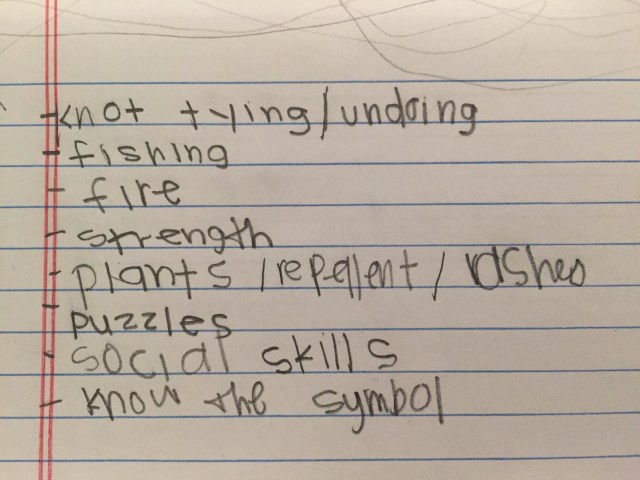 -knot tying/undoing
- fishing
- fire
- strength
- plants /repellent / rashes
- puzzles
- social skills
- know the symbol